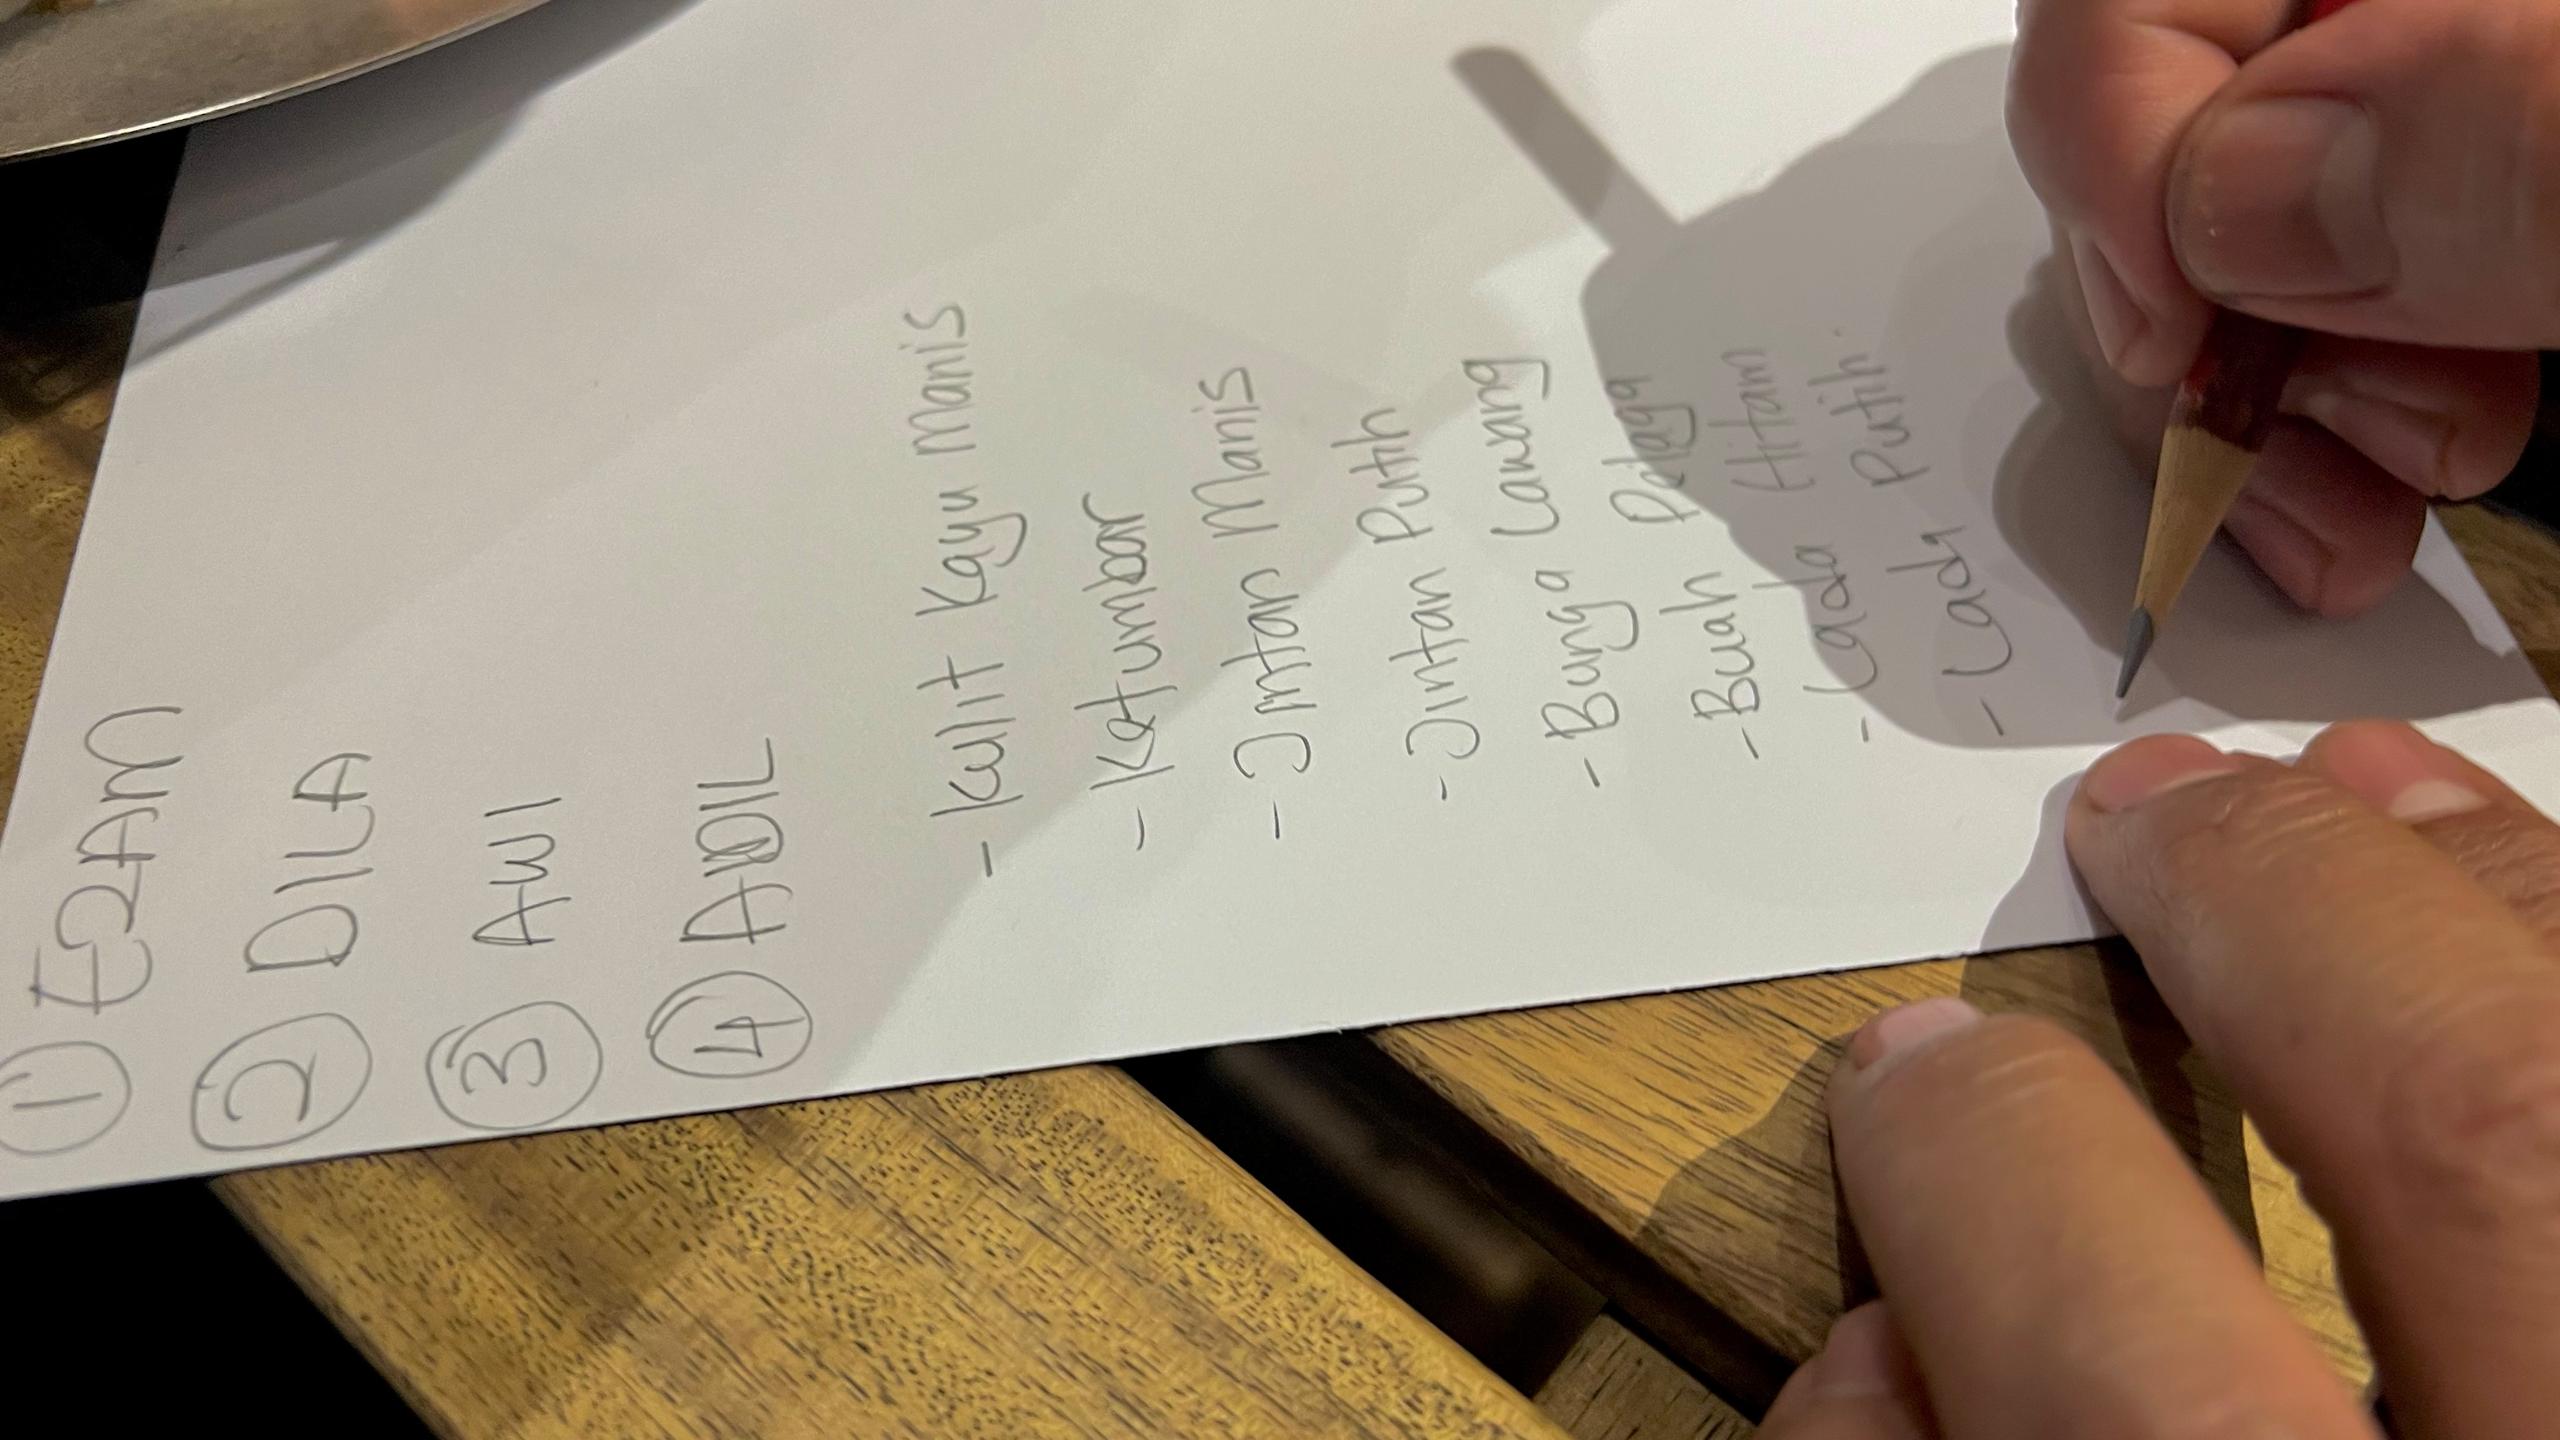 ① EZAM
② DILA
③ AWI
④ AIDIL
- Kulit Kayu Manis
- Katumbar
- Jintan Manis
- Jintan Putih
- Bunga Lawang
- Buah Palaga
- Lada Hitam
- Lada Putih.